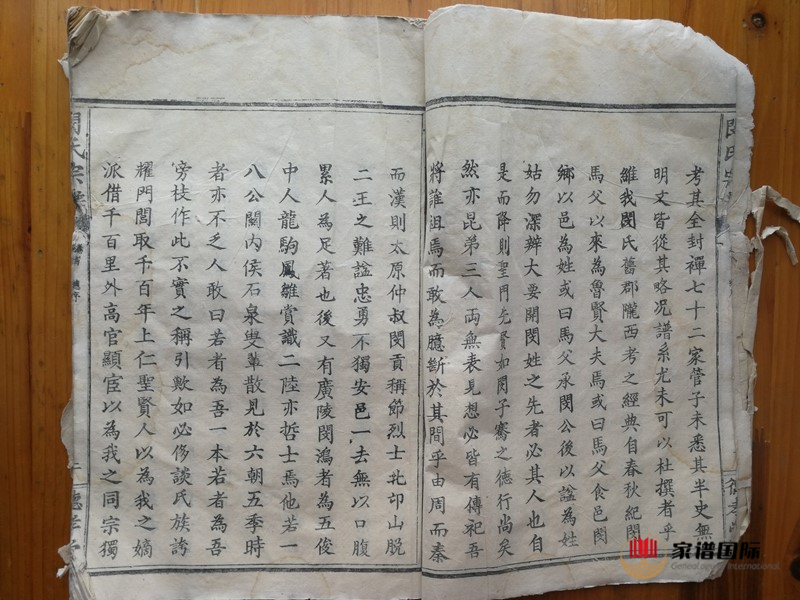 考其全封禪七十二家管子未悉其半史無
明文皆從其略况譜系尤未可以杜撰者乎
維我閔氏舊郡隴西考之經典自春秋紀閔
馬父以來為魯賢大夫焉或曰馬父食邑閔
鄉以邑為姓或曰馬父承閔公後以諡為姓
姑勿深辨大要開閔姓之先者必其人也自
是而降則聖門先賢如閔子騫之德行尚矣
然亦昆弟三人両無表見想必皆有傳祀吾
將誰祖焉而敢為臆斷於其間乎由周而秦
而漢則太原仲叔閔貢稱節烈士北邙山脫
二王之難諡忠勇不獨安邑一去無以口腹
累人為足著也後又有廣陵閔鴻者為五俊
中人龍駒鳳雛賞識二陸亦哲士焉他若一
八公關內侯石泉叟軰散見於六朝五季時
者亦不乏人敢曰若者為吾一本若者為吾
旁枝作此不實之稱引歟如必侈談氏族誇
耀門閭取千百年上仁聖賢人以為我之嫡
派借千百里外高官顯宦以為我之同宗獨
閔氏宗
總序
德孝堂
家谱国际
Genealogy International